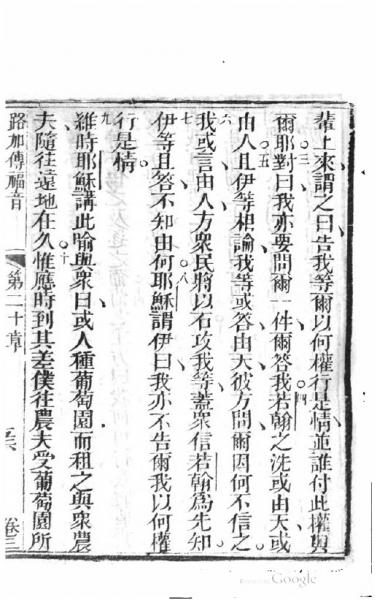 輩上來謂之曰告我等爾以何權行是情並誰付此權與
三
爾耶對曰我亦要問爾一件爾答我若翰之洗或由天或
四
五
由人且伊等相論我等或答由天彼方問爾因何不信之
六
我或言由人方衆民將以石攻我等蓋衆信若翰為先知
七
伊等且答不知由何耶穌謂伊曰我亦不告爾我以何權
八
行是情
九
維時耶穌講此喻與衆曰或人種葡萄園而租之與衆農
夫隨往遠地在久惟應時到其差僕往農夫受葡萄園所
十
路加傳福音
第二十章
卷三
Google